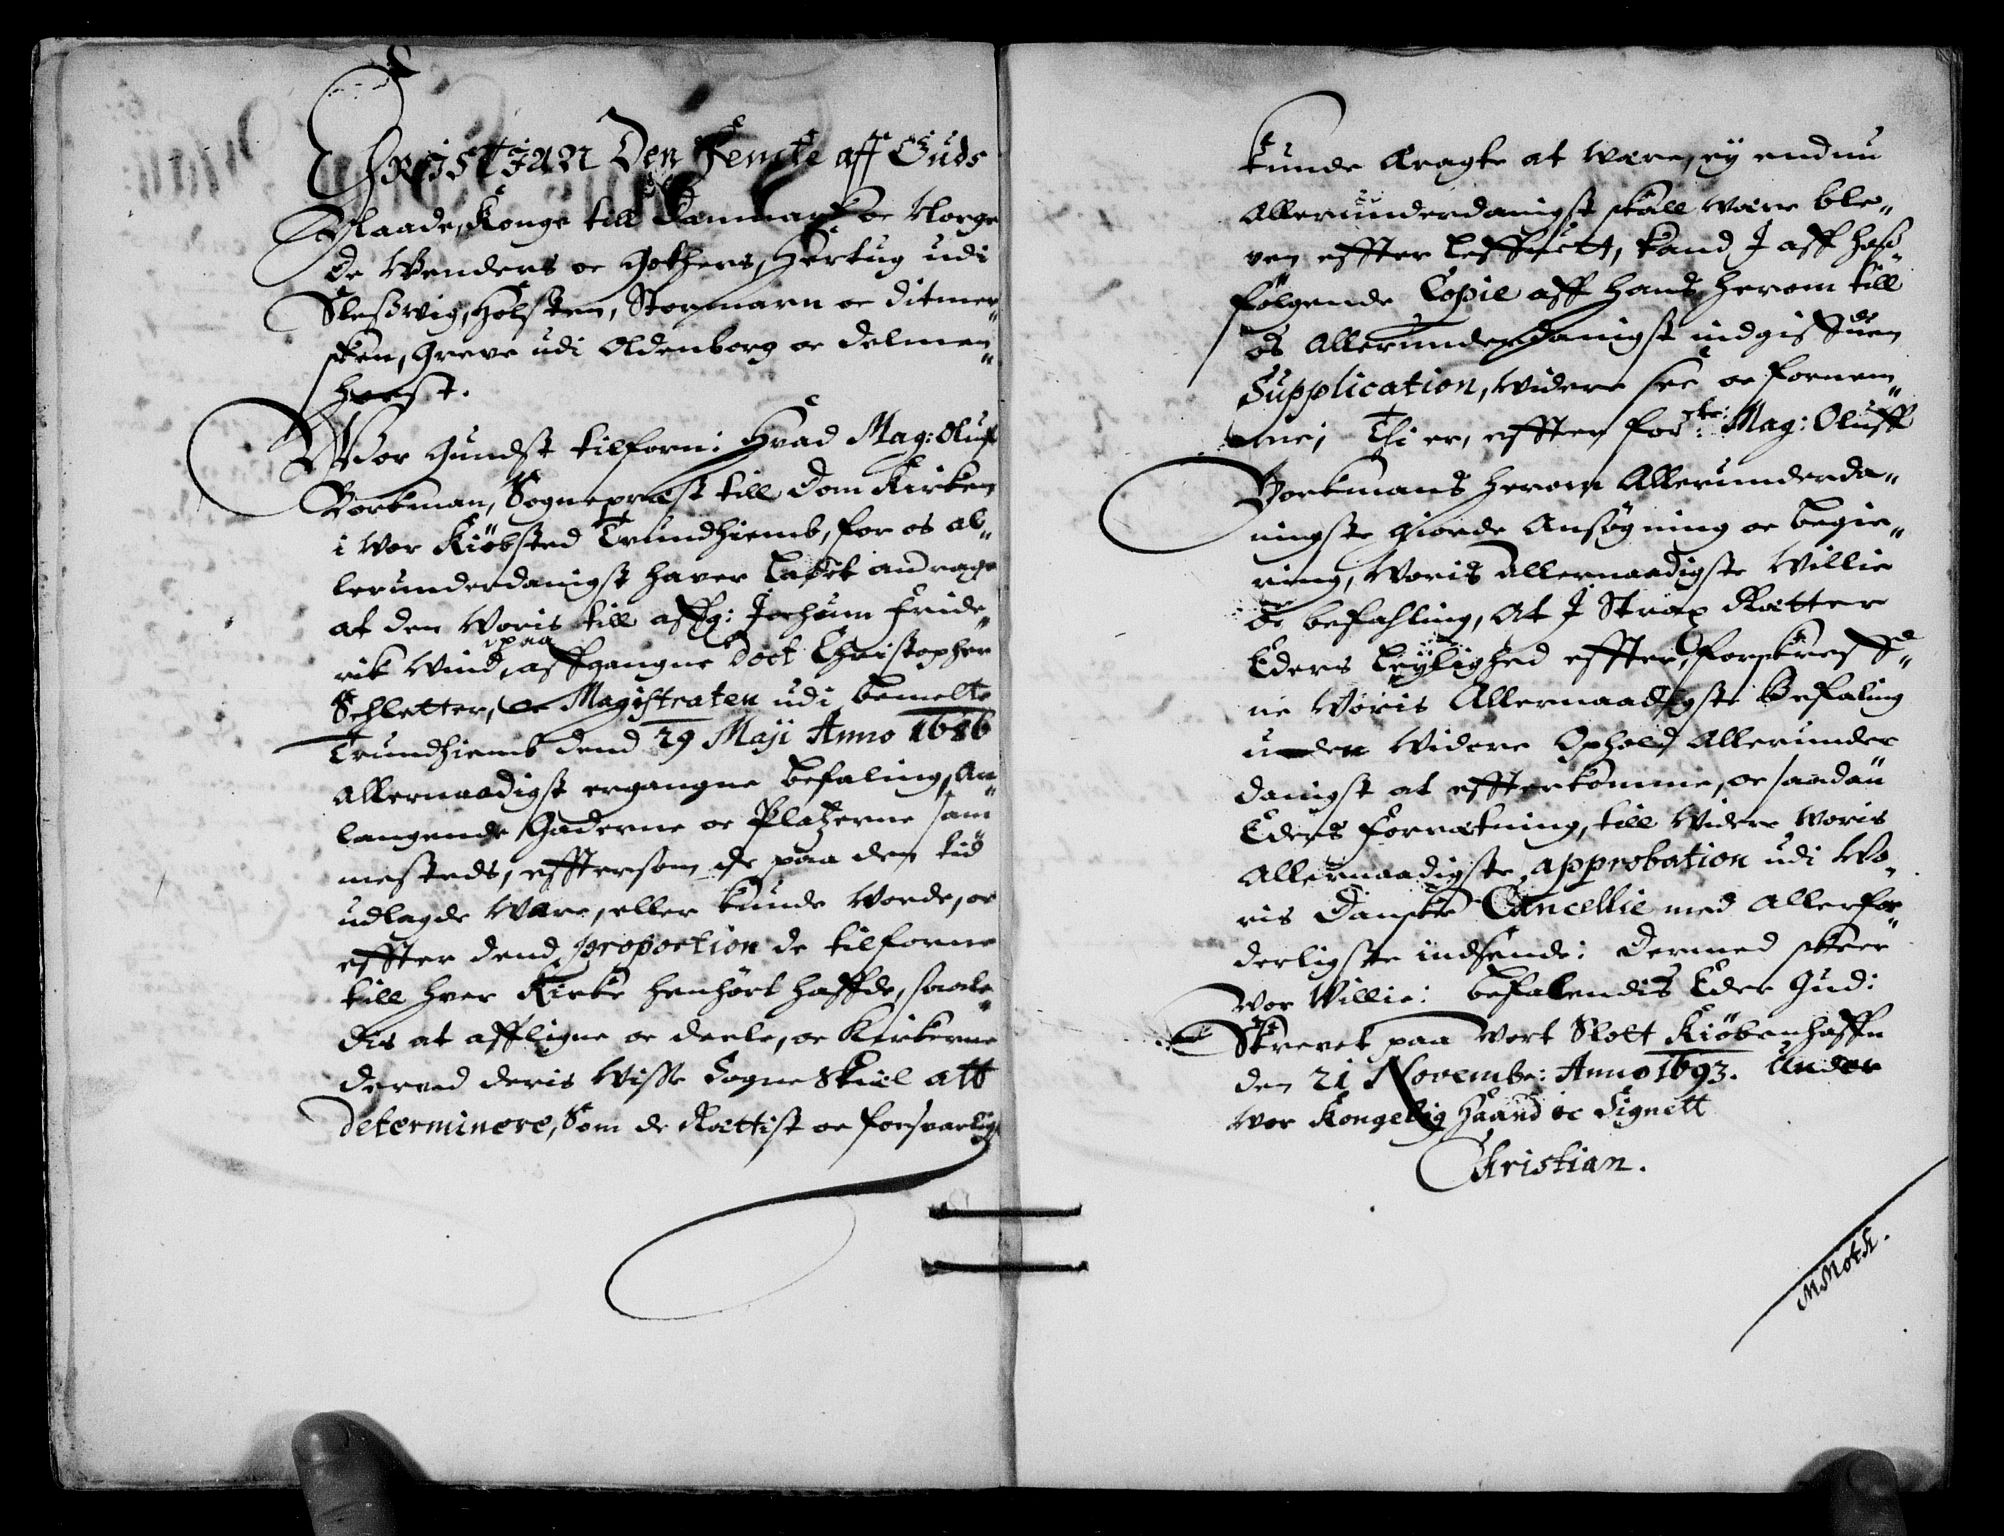 Christian Den Femte aff Guds
Naade, Konge till Danmark oc Norge
De Wenders oc Gothers, Hertug udi
Sleßwig, Holsten, Stormarn oc Ditmer-
sken, Greve udi Oldenborg oc Delmen-
horst.
Wor Gundst tilforn: Hvad Mag: Oluf
Borkman, Sognepræst till Dom Kirken
i Wor Kiøbsted Trundhiemb, for os al-
lerunderdanigst haver ladet andrage
at den Woris till affg: Jochum Fride-
rik Wind, paa affgangne Doct Christopher
Schletter, oc Magistraten udi bemelte
Trundhiemb dend 29 Maji Anno 1686
Allernaadigst ergangne befaling, An-
langende Gaderne oc Platzerne sam-
mesteds, effttersom de paa den tid
udlagde Ware, eller kunde Worde, oc
effter dend proportion de tilforne
till hver Kirke henhørt haffde, saale-
dis at affligne oc deele, oc Kirkerne
derved deris Wisse Sogne Skiel att
determinere, Som de Rettist oc forsvarligst
kunde Eragte at Were, ey endnu
Allerunderdanigst skall were ble-
ven effter leffuett, kand I aff hos-
følgende Copie aff hands herom till
os Allerunderdanigst indgiffuende
Supplication, widere see oc fornem-
me; Thi er, effter forskr: Mag: Oluff
Borkmans herom Allerunderda-
nigste giorde Ansøgning oc begie-
ring, Woris Allernaadigste Willie
oc befahling, At I Strax Retter
Eders leylighed effter, forskreff-
ne Woris Allernaadigste Befaling
uden Widere Ophold Allerunder
danigst at effterkomme, oc saadan
Eders Forretning, till Widere Woris
Allernaadigste approbation udi Wo-
ris Danske Cancellie med Allerfor-
derligste indsende: Dermed skeer
Wor Willie: befalendis Eder Gud:
Skrevet paa Wort Slott Kiøbenhaffn
den 21 Novembr: Anno 1693. Under
Wor Kongelig Haand oc Signett
Christian.
M Moth.